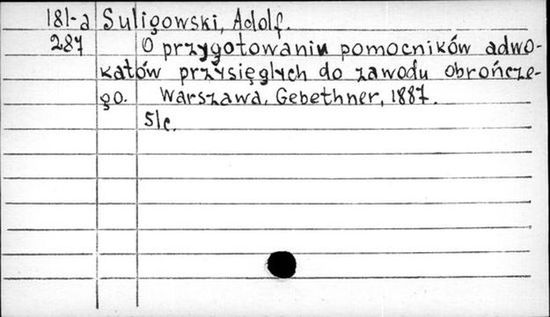 181-a Suligowski, Adolf.
287 O przygotowaniu pomocników adwo-
katów przysięgłych do zawodu obrończe-
go. Warszawa, Gebethner, 1887.
51c.